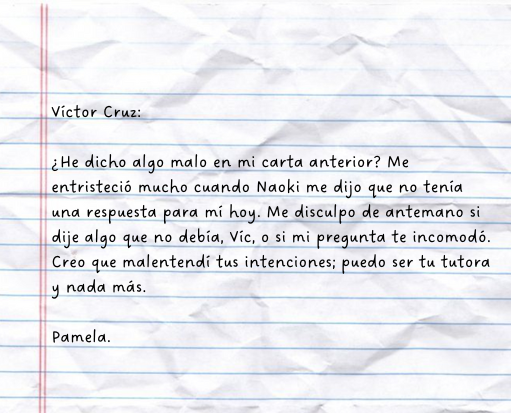 Víctor Cruz:
¿He dicho algo malo en mi carta anterior? Me
entristeció mucho cuando Naoki me dijo que no tenía
una respuesta para mí hoy. Me disculpo de antemano si
dije algo que no debía, Víc, o si mi pregunta te incomodó.
Creo que malentendí tus intenciones; puedo ser tu tutora
y nada más.
Pamela.